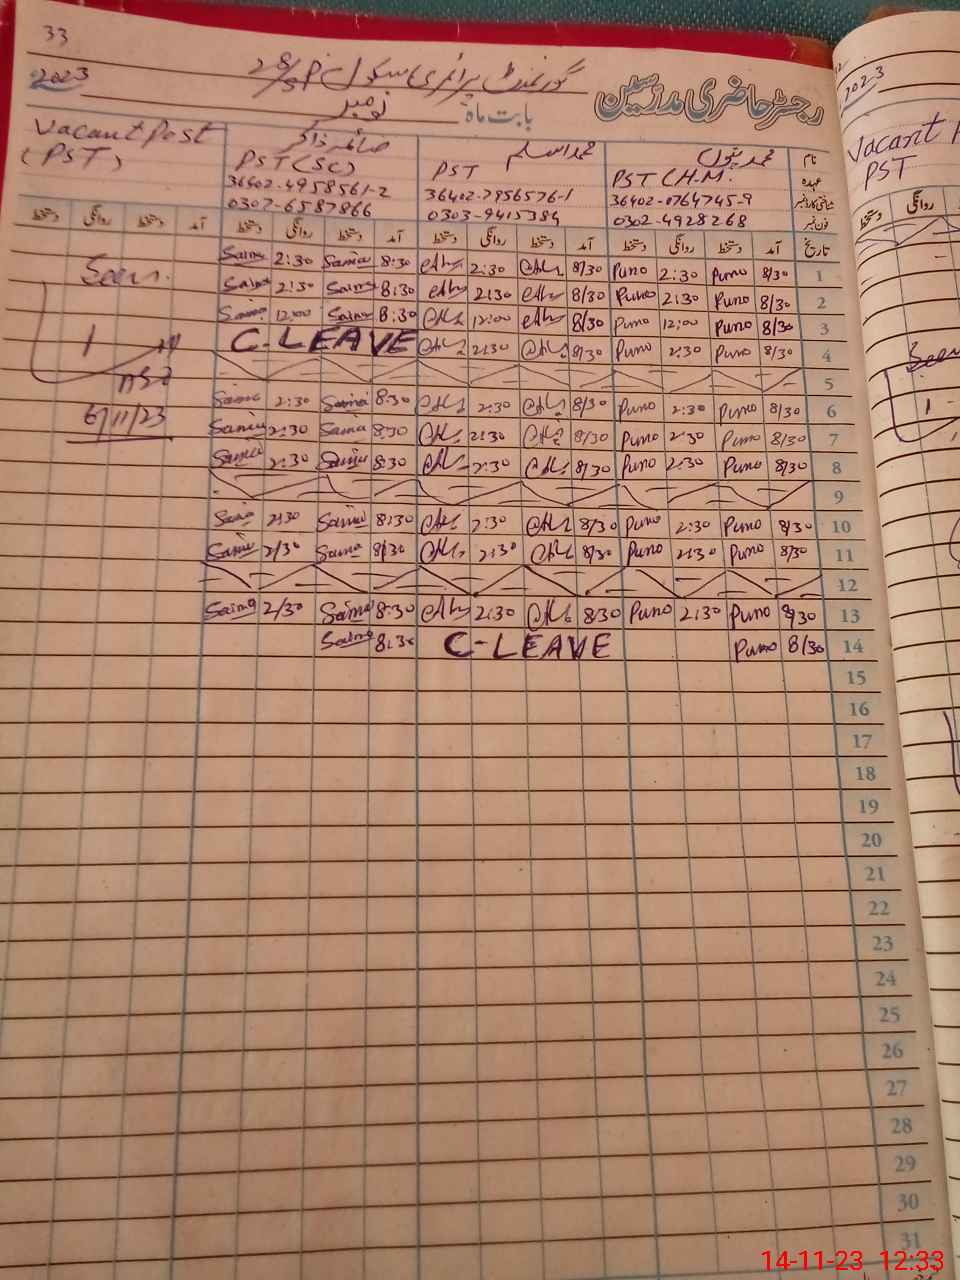 33
2023
گورنمنٹ پرائمری سکول 28/SP
رجسٹر حاضری مدرسین
بابت ماہ نومبر
نام
عہدہ
شناختی کارڈ نمبر
فون نمبر
PST (H.M)
36402-0764745-9
0302-4928268
محمد اسلم
PST
36402-7956576-1
0303-9415384
صائمہ ذاکر
PST (SC)
36402-4958561-2
0307-6587866
Vacant Post
(PST)
تاریخ آمد دستخط روانگی دستخط آمد دستخط روانگی دستخط آمد دستخط روانگی دستخط آمد دستخط روانگی دستخط
1 8/30 Puno 2:30 Puno 8/30 2:30 8:30 Saima 2:30 Saima
2 8/30 Puno 2:30 Puno 8/30 2:30 8:30 Saima 2:30 Saima
3 8/30 Puno 12:00 Puno 8/30 12:00 8:30 Saima 12:00 Saima
4 8/30 Puno 2:30 Puno 8/30 2:30 C-LEAVE
5
6 8/30 Puno 2:30 Puno 8/30 2:30 8:30 Saima 2:30 Saima
7 8/30 Puno 2:30 Puno 8/30 2:30 8:30 Saima 2:30 Saima
8 8/30 Puno 2:30 Puno 8/30 2:30 8:30 Saima 2:30 Saima
9
10 8/30 Puno 2:30 Puno 8/30 2:30 8:30 Saima 2:30 Saima
11 8/30 Puno 2:30 Puno 8/30 2:30 8/30 Saima 2/30 Saima
12
13 8/30 Puno 2:30 Puno 8/30 2:30 8:30 Saima 2/30 Saima
14 8/30 Puno C-LEAVE 8:30 Saima
15
16
17
18
19
20
21
22
23
24
25
26
27
28
29
30
31
Seen.
6/11/23
2023
Vacant
PST
روانگی دستخط
Seen
14-11-23 12:33